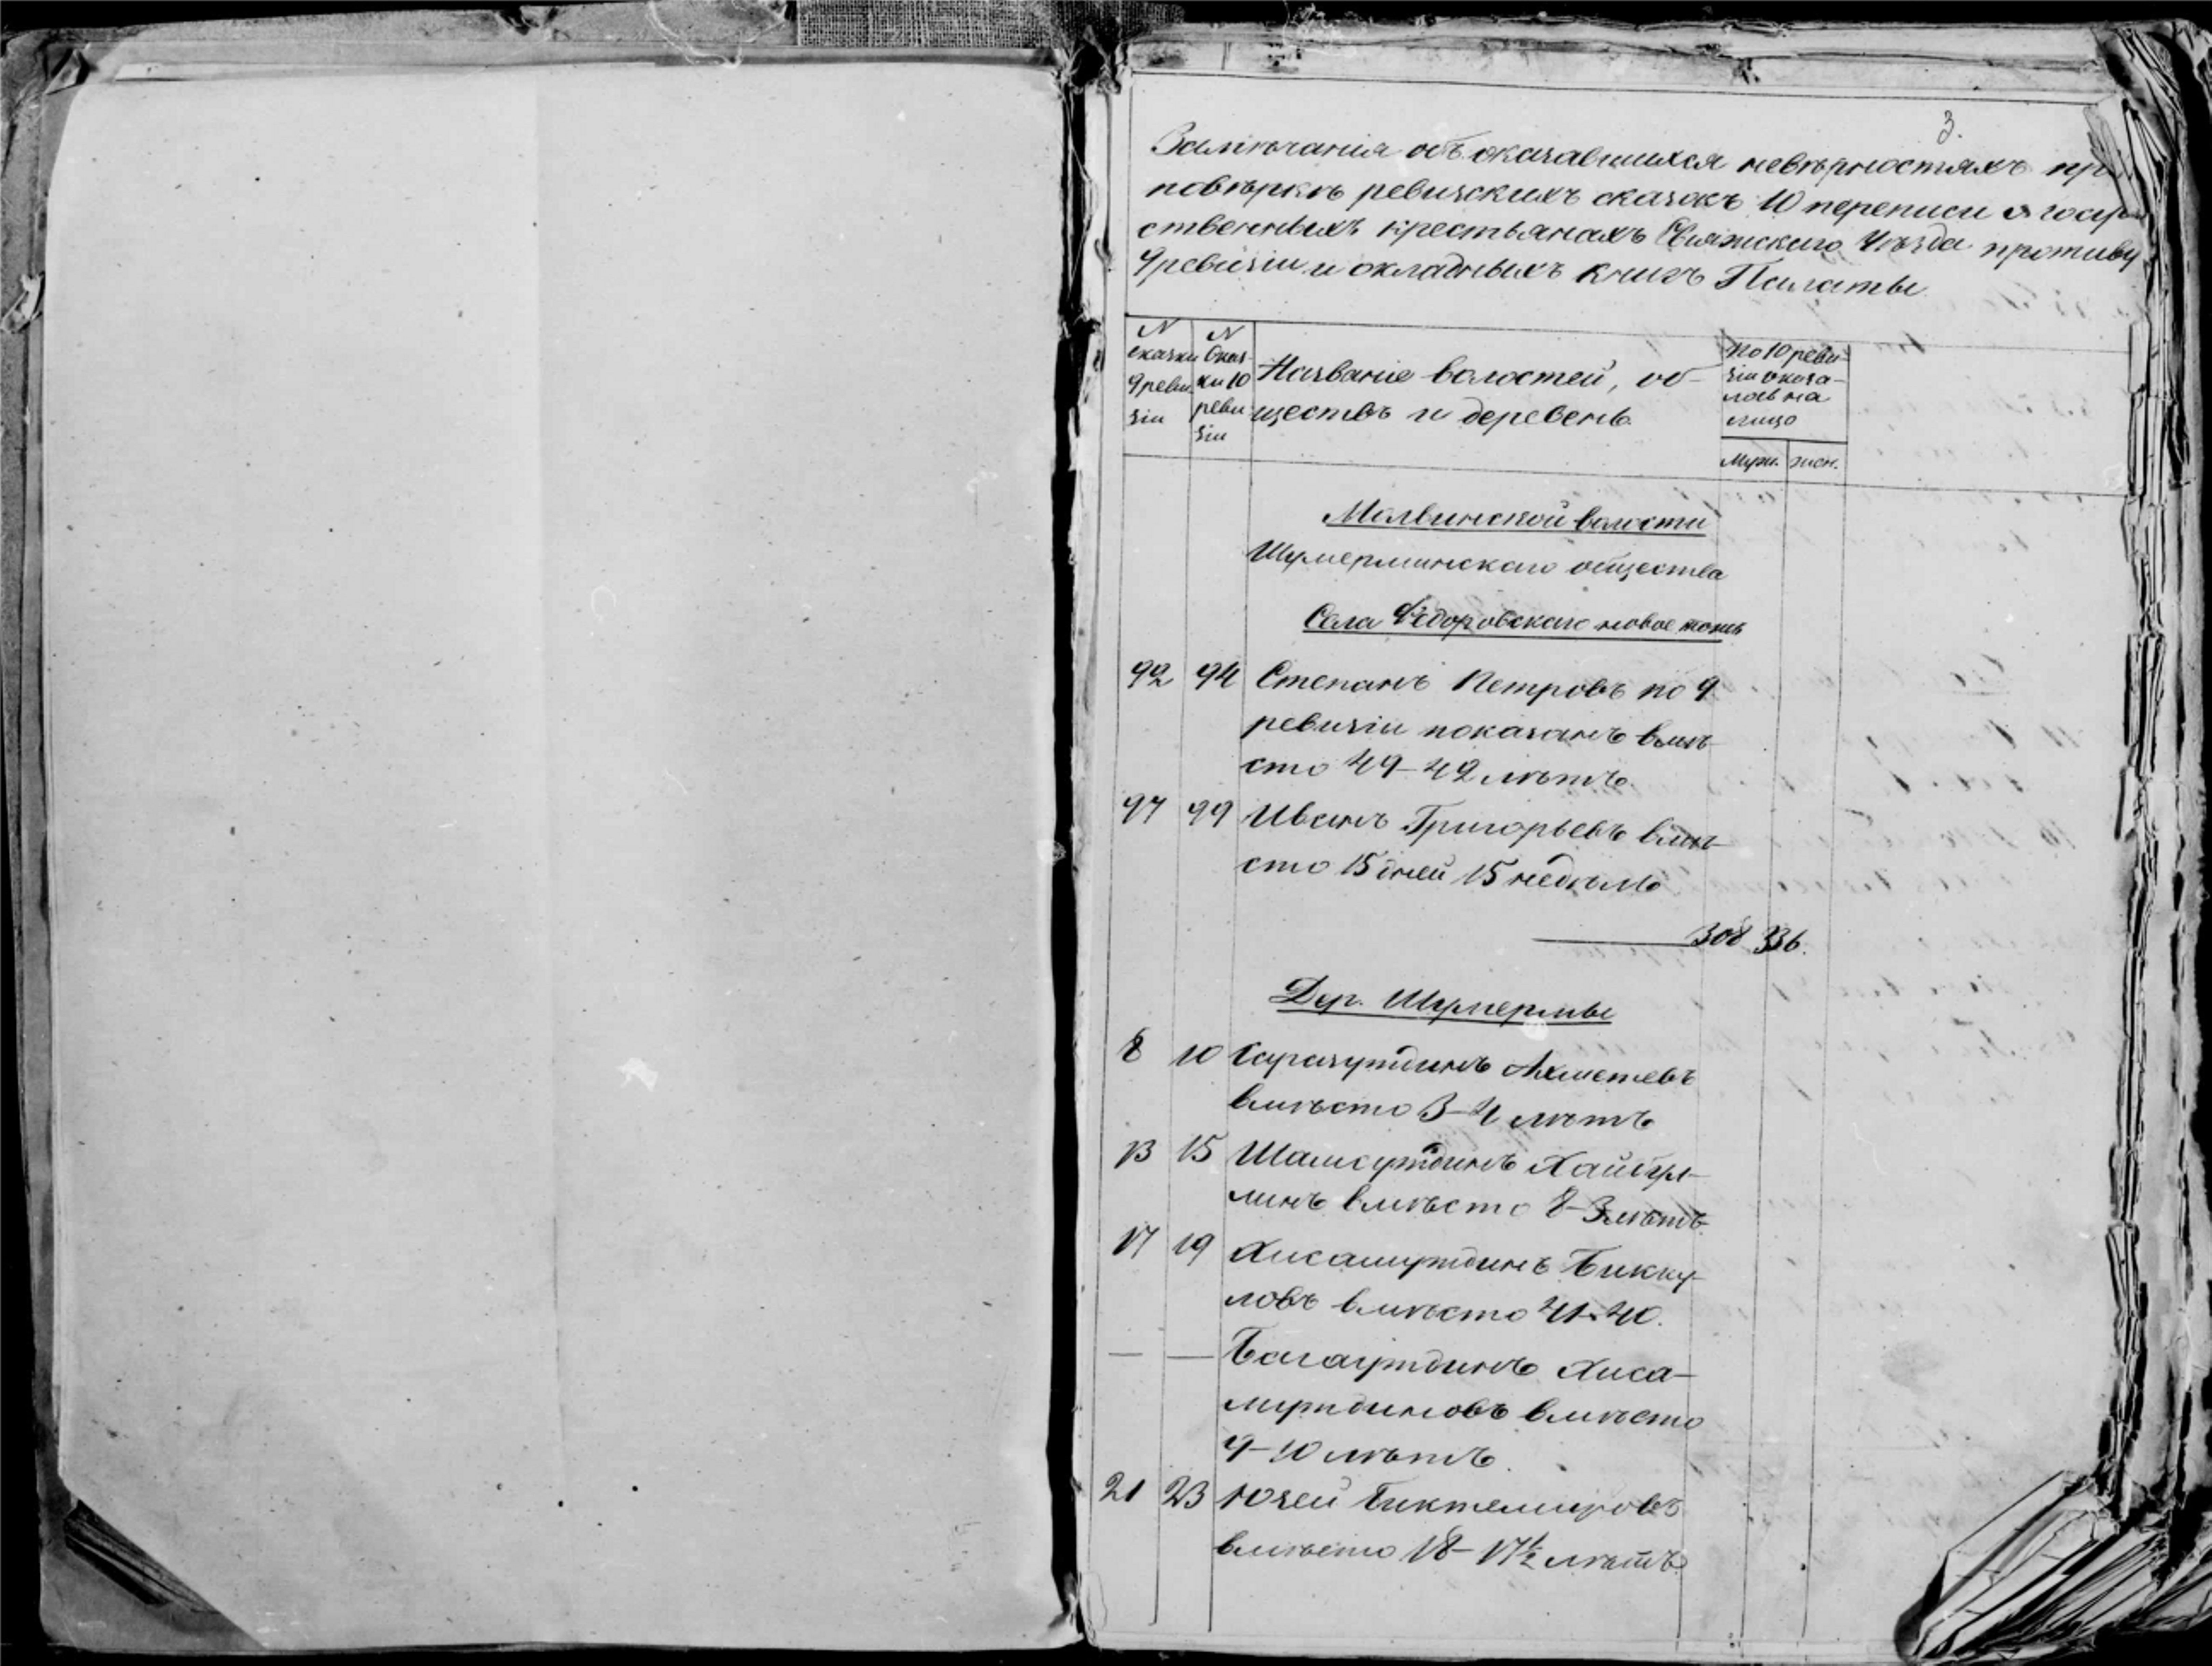 3.
Замѣчанія объ оказавшихся невѣрностяхъ при
повѣркѣ ревизскихъ сказокъ 10 переписи о госуда
ственныхъ крестьянахъ Свіяжскаго Уѣзда противу
9 ревизіи и окладныхъ книгъ Палаты
N сказки 9 ревизіи
N Сказки 10 ревизіи
Названіе волостей, об-
ществъ и деревень.
По 10 реви-
зіи оказа-
лось на
лицо
Муж. жен.
Молвинской волости
Шумерлинскаго общества
Села Федоровскаго новое тожъ
92 94 Степанъ Петровъ по 9
ревизіи показанъ вмѣ-
сто 49-42 лѣтъ.
97 99 Иванъ Григорьевъ вмѣ-
сто 15 дней 15 недѣль
308 336.
Дер. Шумерлы
8 10 Ахметевъ
вмѣсто 3-4 лѣтъ
13 15 Шамсутдинъ Хайбул-
линъ вмѣсто 8-3 лѣтъ.
17 19 Хисамутдинъ Бикку-
ловъ вмѣсто 41-40.
— — Багаутдинъ Хиса-
мутдиновъ вмѣсто
9-10 лѣтъ.
21 23 Юзей Биктемировъ
вмѣсто 18-17½ лѣтъ.